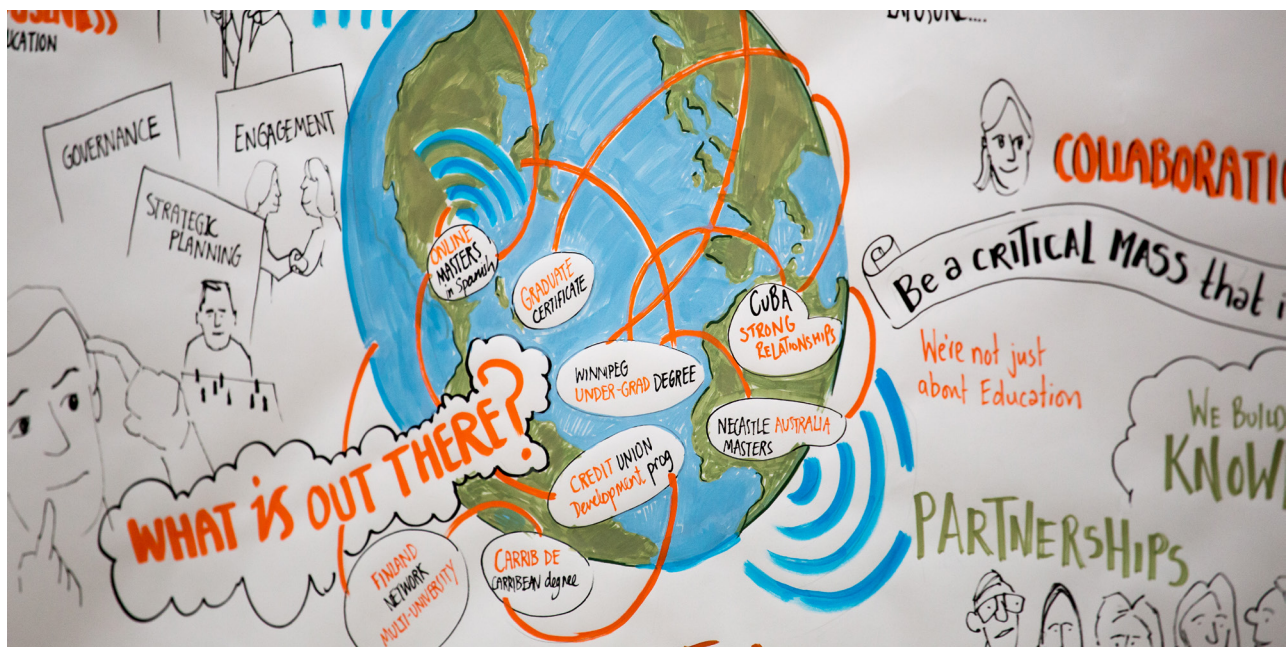 UCATION
GOVERNANCE
ENGAGEMENT
STRATEGIC
PLANNING
ONLINE
MASTERS
in Spanish
GRADUATE
CERTIFICATE
CUBA
STRONG
RELATIONSHIPS
WINNIPEG
UNDER-GRAD DEGREE
NECASTLE AUSTRALIA
MASTERS
CREDIT UNION
Development prog
WHAT iS OUT THERE?
FINLAND
NETWORK
MULTI-UNIVERSITY
CARRIB DE
CARRIBEAN degree
COLLABORATI
Be a CRITICAL MASS that
We're not just
about Education
WE BUILD
KNOW
PARTNERSHIPS